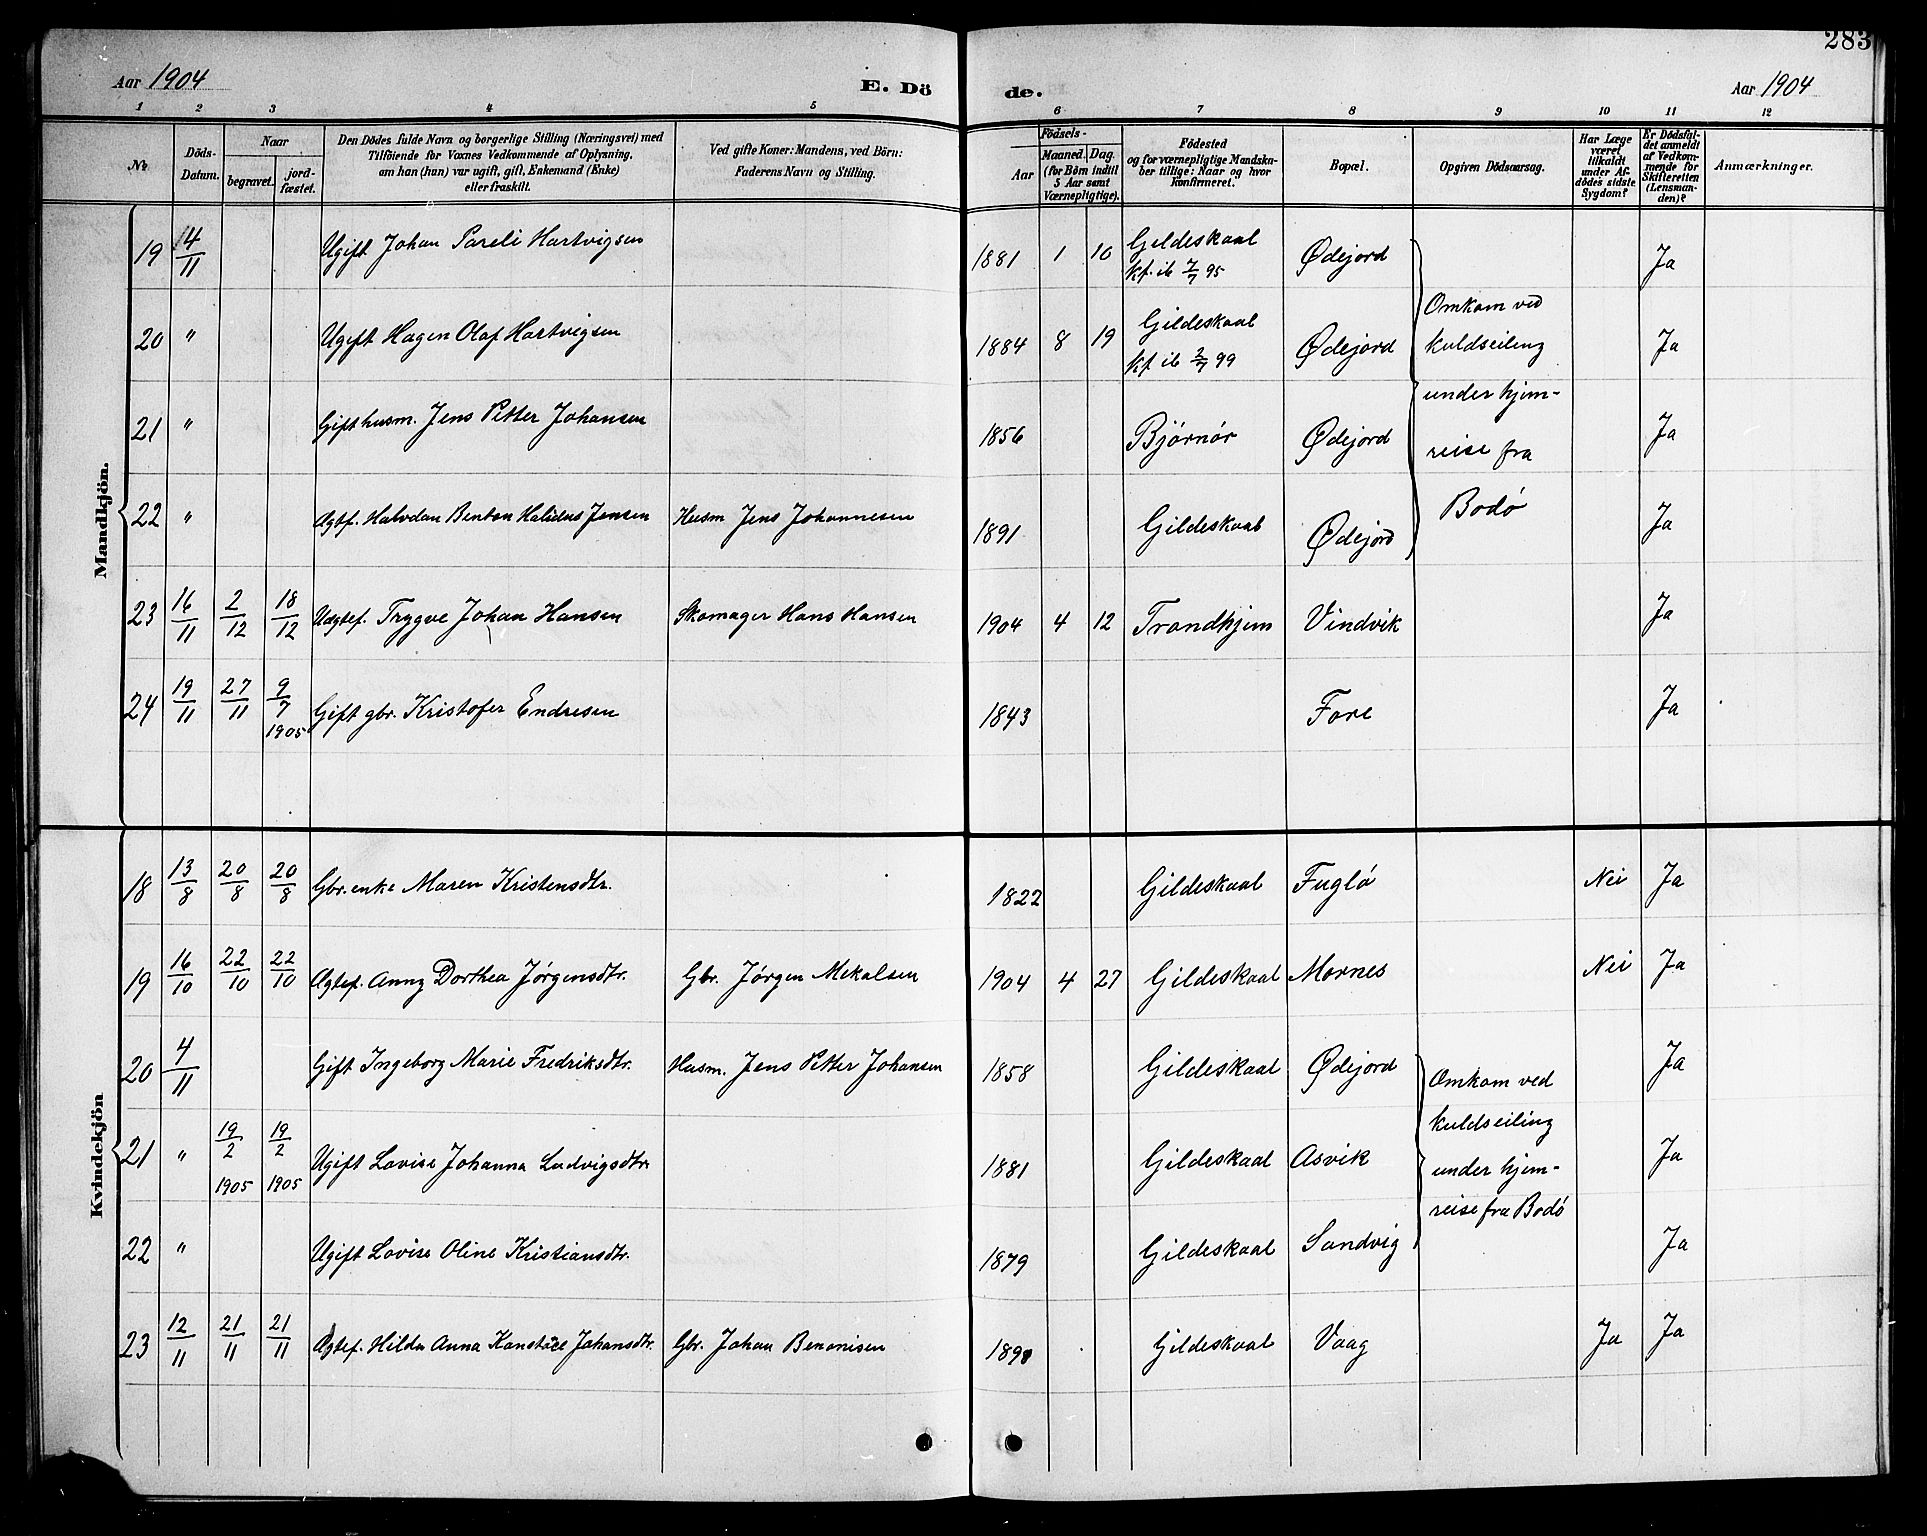 283
Aar 1904 E. Dö de. Aar 1904
1 2 3 4 5 6 7 8 9 10 11 12
No
Döds-Datum.
Naar
begravet.
jordfæstet.
Den Dödes fulde Navn og borgerlige Stilling (Næringsvei) med
Tilföiende for Voxnes Vedkommende af Oplysning,
om han (hun) var ugift, gift, Enkemand (Enke)
eller fraskilt.
Ved gifte Koner: Mandens, ved Börn:
Faderens Navn og Stilling.
Födsels-
Aar
Maaned. Dag.
(for Börn indtil
5 Aar samt
Værnepligtige).
Födested
og for værnepligtige Mandska-
ber tillige: Naar og hvor
Konfirmeret.
Bopæl.
Opgiven Dödsaarsag.
Har Læge
været
tilkaldt
under Af-
dödes sidste
Sygdom?
Er Dödsfal-
det anmeldt
af Vedkom-
mende for
Skifteretten
(Lensman-
den)?
Anmærkninger.
Mandkjön.
19 14/11 Ugift Johan Pareli Hartvigsen 1881 1 10 Gildeskaal Ødejord Ja
kf. ib 7/7 95
20 " Ugift Hagen Olaf Hartvigsen 1884 8 19 Gildeskaal Ødejord Ja
kf ib 2/7 99
21 " Gift husm. Jens Petter Johansen 1856 Bjørnør Ødejord Ja
22 " Ægtef. Halvdan Benton Halidus Jensen Husm Jens Johannesen 1891 Gildeskaal Ødejord Ja
Omkom ved
kuldseiling
under hjem-
reise fra
Bodø
23 16/11 2/12 18/12 Uægtef. Trygve Johan Hansen Skomager Hans Hansen 1904 4 12 Trondhjem Vindvik Ja
24 19/11 27/11 9/7 1905 Gift gbr. Kristofer Endresen 1843 Fore Ja
Kvindekjön
18 13/8 20/8 20/8 Gbr. enke Maren Kristensdtr. 1822 Gildeskaal Fuglø Nei Ja
19 16/10 22/10 22/10 Ægtef. Anny Dorthea Jørgensdtr. Gbr. Jørgen Mekalsen 1904 4 27 Gildeskaal Mornes Nei Ja
20 4/11 Gift Ingeborg Marie Fredriksdtr. Husm. Jens Petter Johansen 1858 Gildeskaal Ødejord Ja
21 " 19/2 1905 19/2 1905 Ugift Lovise Johanna Ludvigsdtr. 1881 Gildeskaal Asvik Ja
22 " Ugift Lovise Oline Kristiansdtr. 1879 Gildeskaal Sandvig Ja
Omkom ved
kuldseiling
under hjem-
reise fra Bodø
23 12/11 21/11 21/11 Ægtef. Hilda Anna Johansdtr. Gbr. Johan Benonisen Gildeskaal Vaag Ja Ja